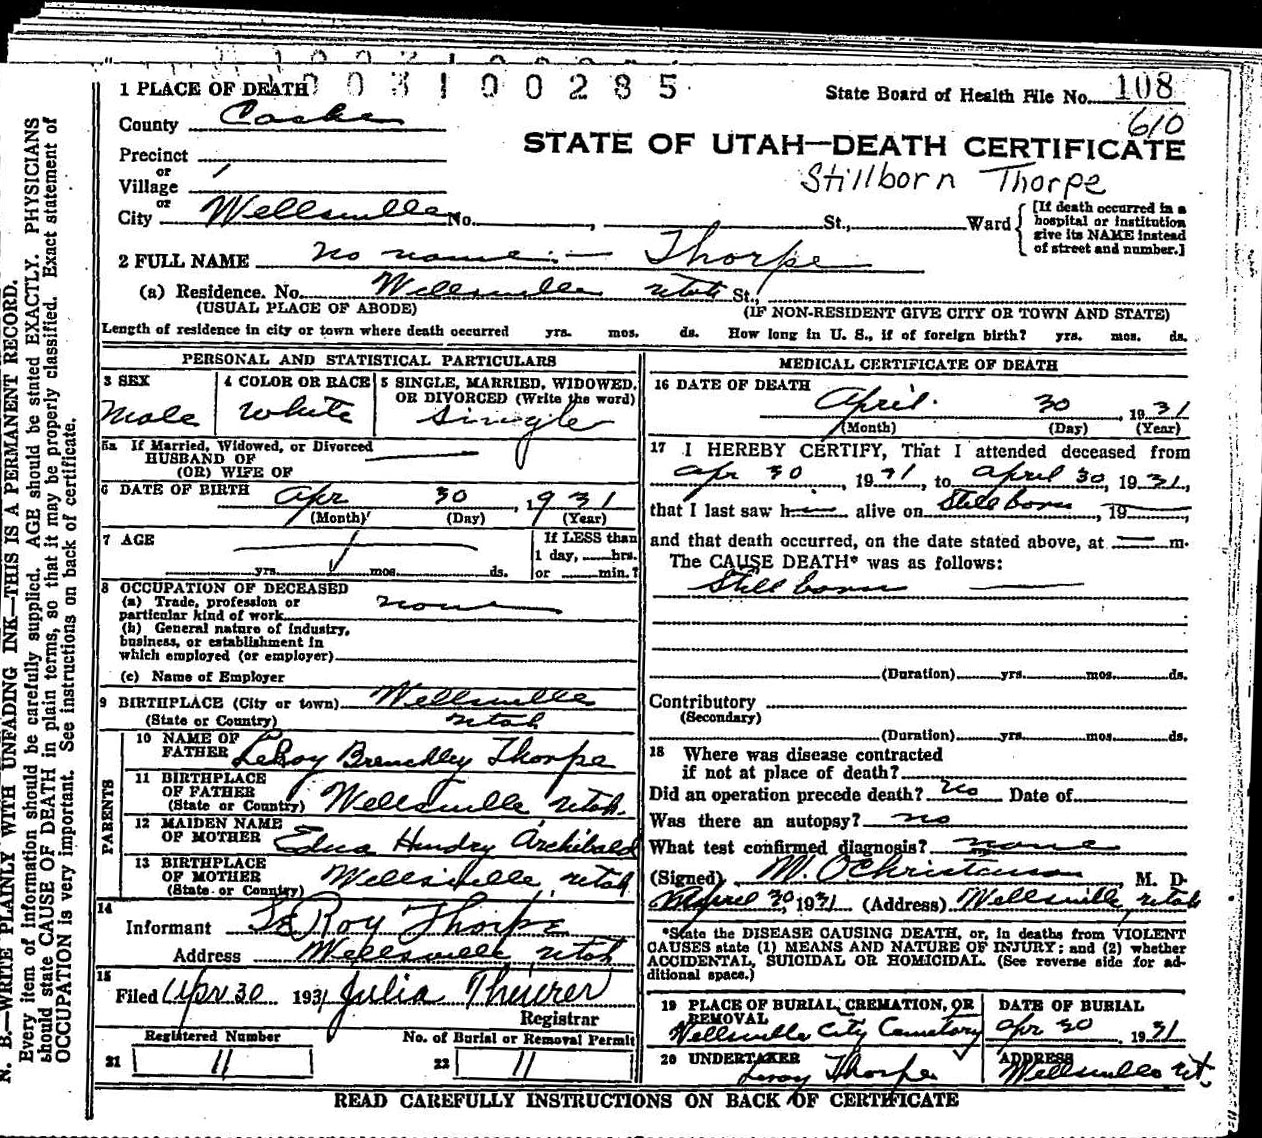 0 0 3 1 0 0 2 8 5
1 PLACE OF DEATH
State Board of Health File No. 108
610
County Cache
STATE OF UTAH—DEATH CERTIFICATE
Precinct
or
Village
Stillborn Thorpe
or
City Wellsville No. , St., Ward
[If death occurred in a
hospital or institution
give its NAME instead
of street and number.]
2 FULL NAME no name — Thorpe
(a) Residence. No. Wellsville Utah St.,
(USUAL PLACE OF ABODE) (IF NON-RESIDENT GIVE CITY OR TOWN AND STATE)
Length of residence in city or town where death occurred yrs. mos. ds. How long in U. S., if of foreign birth? yrs. mos. ds.
PERSONAL AND STATISTICAL PARTICULARS
3 SEX
Male
4 COLOR OR RACE
White
5 SINGLE, MARRIED, WIDOWED,
OR DIVORCED (Write the word)
Single
5a If Married, Widowed, or Divorced
HUSBAND OF
(OR) WIFE OF
6 DATE OF BIRTH Apr 30, 1931
(Month) (Day) (Year)
7 AGE
yrs. mos. ds.
If LESS than
1 day, hrs.
or min.?
8 OCCUPATION OF DECEASED
(a) Trade, profession or
particular kind of work none
(b) General nature of industry,
business, or establishment in
which employed (or employer)
(c) Name of Employer
9 BIRTHPLACE (City or town) Wellsville
(State or Country) Utah
PARENTS
10 NAME OF
FATHER LeRoy Brenchley Thorpe
11 BIRTHPLACE
OF FATHER
(State or Country) Wellsville Utah.
12 MAIDEN NAME
OF MOTHER Edna Hendry Archibald
13 BIRTHPLACE
OF MOTHER
(State or Country) Wellsville, Utah
14
Informant Le Roy Thorpe
Address Wellsville, Utah
15
Filed Apr 30 1931 Julia Theurer
Registrar
Registered Number
21 11
No. of Burial or Removal Permit
22 11
MEDICAL CERTIFICATE OF DEATH
16 DATE OF DEATH
April 30, 1931
(Month) (Day) (Year)
17 I HEREBY CERTIFY, That I attended deceased from
Apr 30, 1931, to April 30, 1931,
that I last saw h alive on Still born, 19
and that death occurred, on the date stated above, at m.
The CAUSE DEATH* was as follows:
Still born
(Duration) yrs. mos. ds.
Contributory
(Secondary)
(Duration) yrs. mos. ds.
18 Where was disease contracted
if not at place of death?
Did an operation precede death? No Date of
Was there an autopsy? no
What test confirmed diagnosis? none
(Signed) M. O Christensen M. D.
April 30, 1931 (Address) Wellsville, Utah
*State the DISEASE CAUSING DEATH, or, in deaths from VIOLENT
CAUSES state (1) MEANS AND NATURE OF INJURY; and (2) whether
ACCIDENTAL, SUICIDAL OR HOMICIDAL. (See reverse side for ad-
ditional space.)
19 PLACE OF BURIAL, CREMATION, OR
REMOVAL
Wellsville City Cemetory
DATE OF BURIAL
Apr 30, 1931
20 UNDERTAKER
Leroy Thorpe
ADDRESS
Wellsville Ut.
READ CAREFULLY INSTRUCTIONS ON BACK OF CERTIFICATE
N. B.—WRITE PLAINLY WITH UNFADING INK—THIS IS A PERMANENT RECORD.
Every item of information should be carefully supplied. AGE should be stated EXACTLY. PHYSICIANS
should state CAUSE OF DEATH in plain terms, so that it may be properly classified. Exact statement of
OCCUPATION is very important. See instructions on back of certificate.